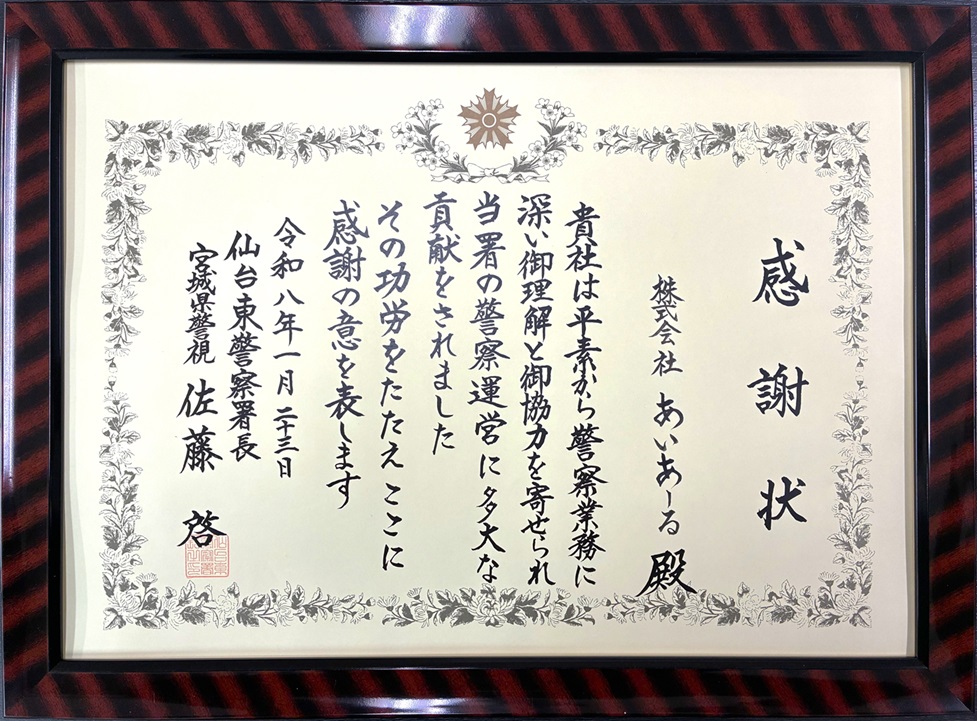 感謝状
株式会社 あいあーる 殿
貴社は平素から警察業務に
深い御理解と御協力を寄せられ
当署の警察運営に多大な
貢献をされました
その功労をたたえここに
感謝の意を表します
令和八年一月二十三日
仙台東警察署長
宮城県警視 佐藤 啓